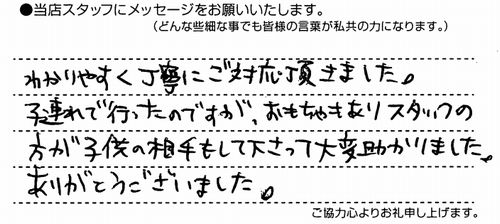 ●当店スタッフにメッセージをお願いいたします。
(どんな些細な事でも皆様の言葉が私共の力になります。)
わかりやすく丁寧にご対応頂きました。
子連れで行ったのですが、おもちゃもありスタッフの
方が子供の相手もして下さって大変助かりました。
ありがとうございました。
ご協力心よりお礼申し上げます。